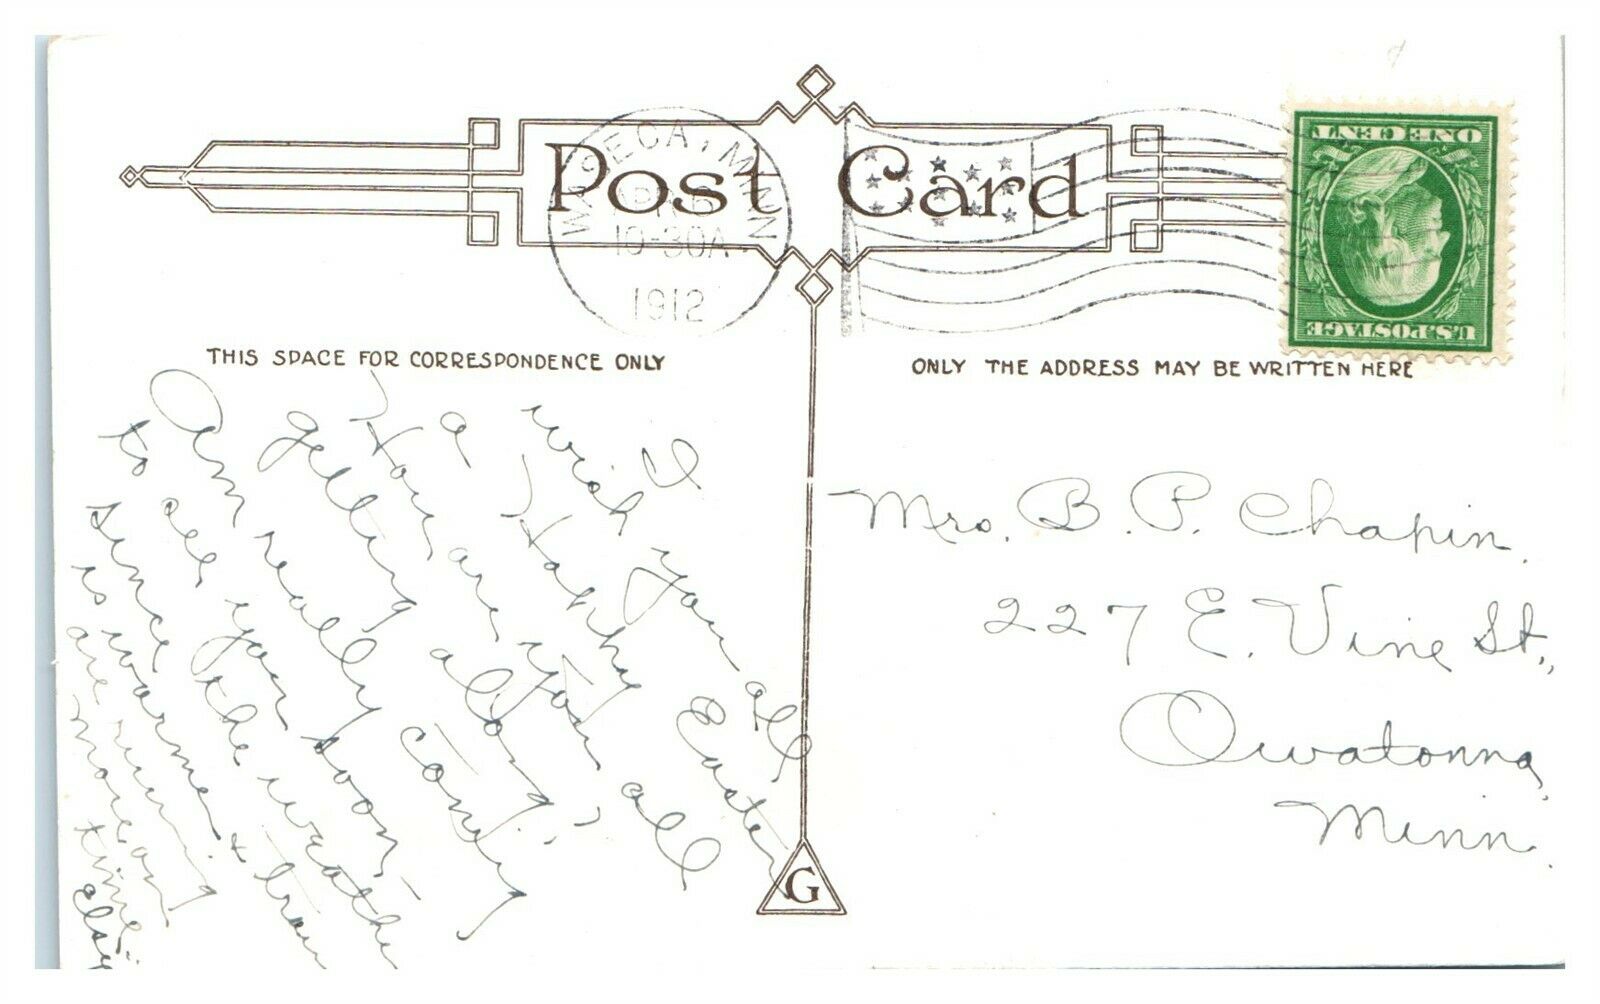 Post Card
WASECA, MINN
APR 6
10-30A
1912
U.S.POSTAGE
ONE CENT
THIS SPACE FOR CORRESPONDENCE ONLY
ONLY THE ADDRESS MAY BE WRITTEN HERE
I
wish you all
a Happy Easter
How are you all
getting along?
Am really coming
to see you soon -
since the weather
is warmer & trains
are running
more on
time.
Elsie
Mrs. B. P. Chapin.
227 E. Vine St.,
Owatonna,
Minn.
G